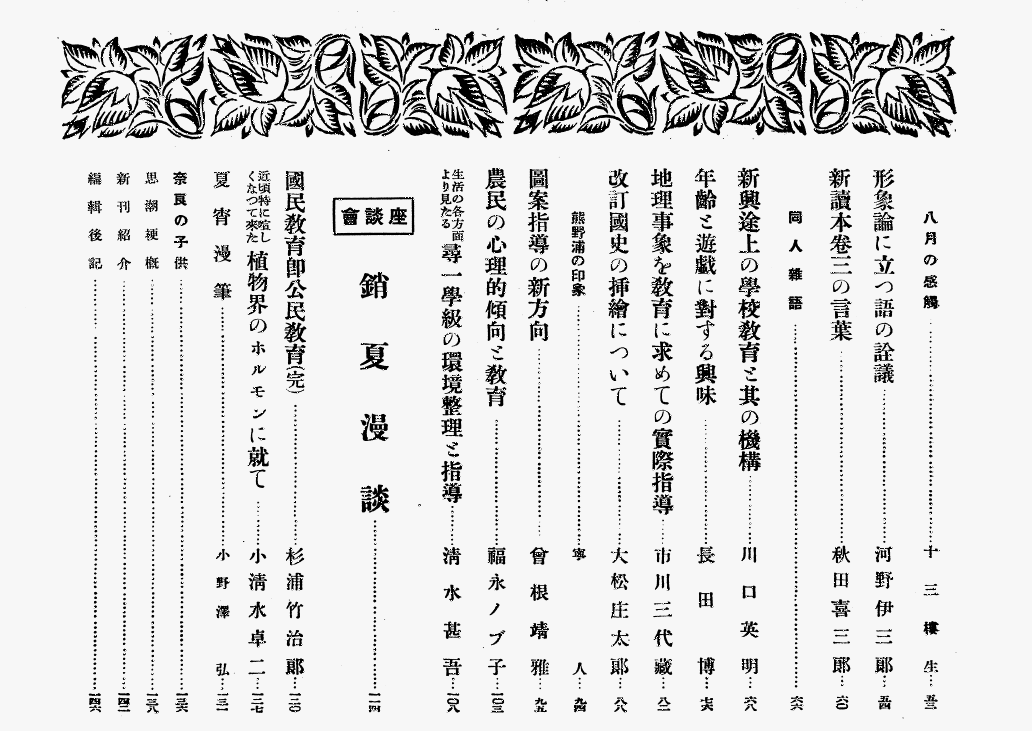 八月の感觸……十三樓生…五三
形象論に立つ語の詮議……河野伊三郞…五四
新讀本卷三の言葉……秋田喜三郞…六〇
同人雜語……六六
新興途上の學校敎育と其の機構……川口英明…六八
年齡と遊戲に對する興味……長田博…七六
地理事象を敎育に求めての實際指導……市川三代藏…八二
改訂國史の挿繪について……大松庄太郞…八八
熊野浦の印象……寧人…九四
圖案指導の新方向……曾根靖雅…九五
農民の心理的傾向と敎育……福永ノブ子…一〇三
生活の各方面より見たる尋一學級の環境整理と指導……淸水甚吾…一〇八
座談會
銷夏漫談……一一四
國民敎育卽公民敎育(完)……杉浦竹治郞…一三〇
近頃特に喧しくなつて來た植物界のホルモンに就て……小淸水卓二…一二七
夏宵漫筆……小野澤弘…一三一
奈良の子供……一三六
思潮梗槪……一三八
新刊紹介……一四二
編輯後記……一四六